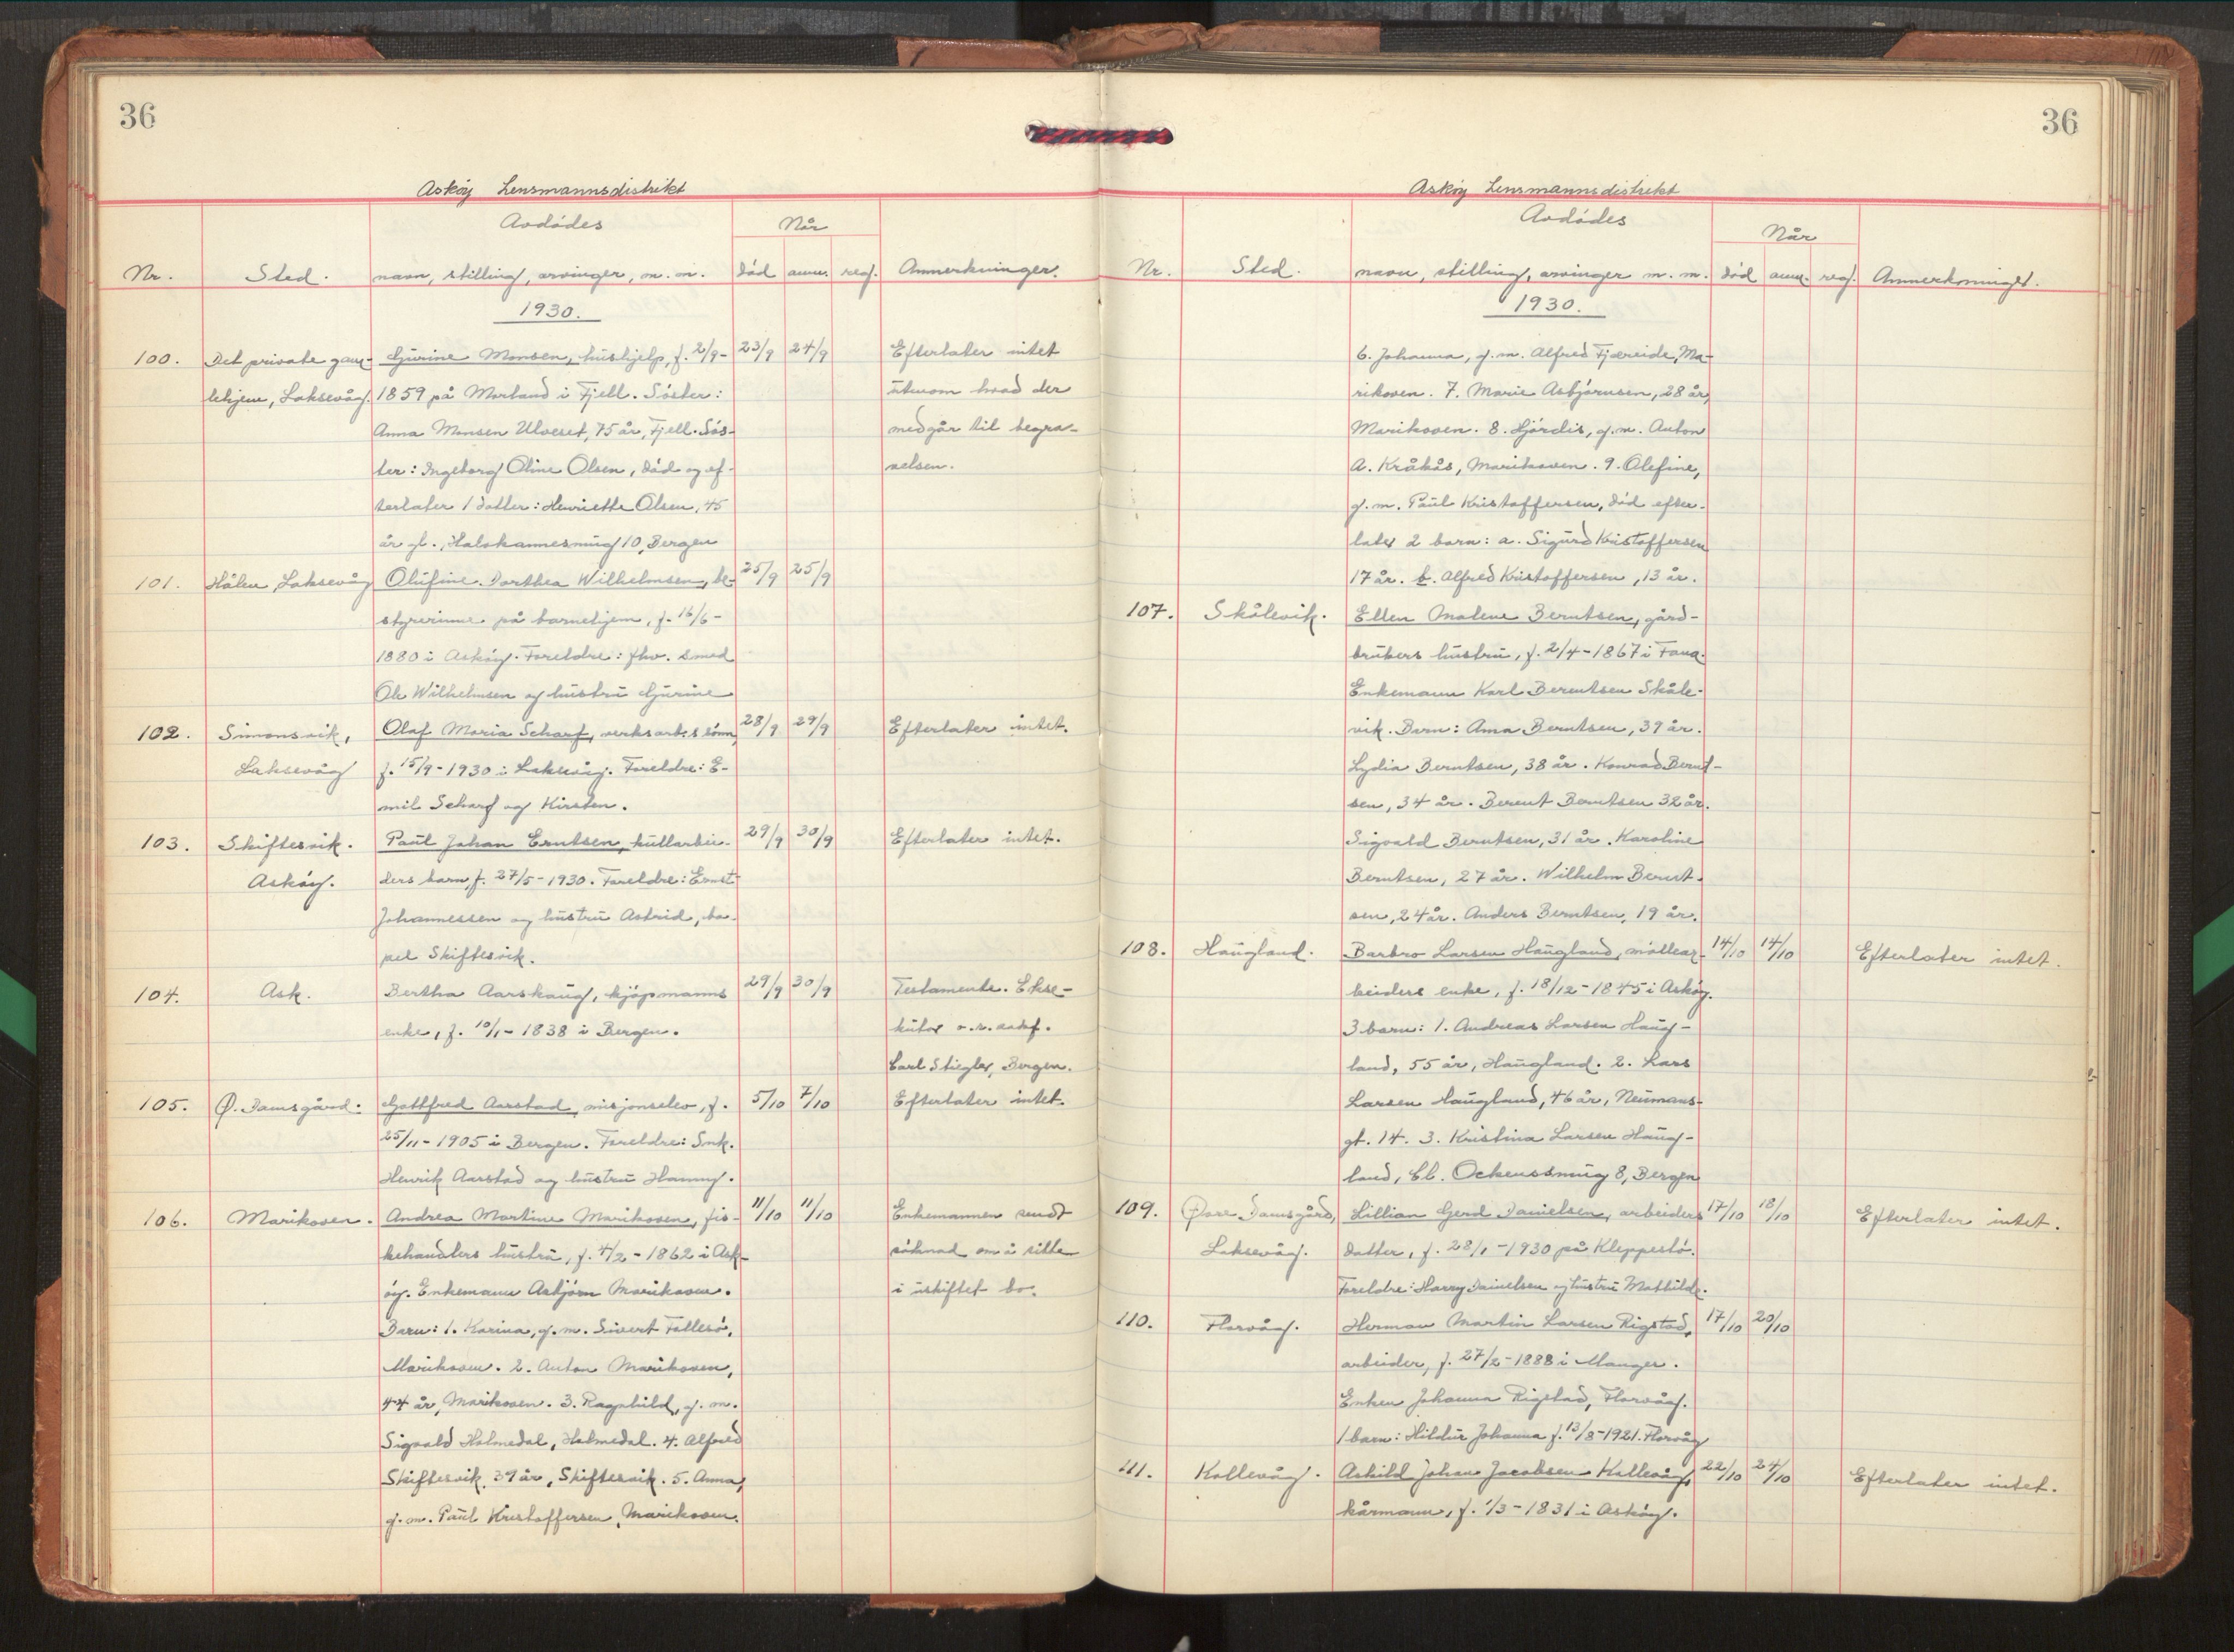 36
Askøy Lensmannsdistrikt
Avdødes
Når
Nr. Sted. navn, stilling, arvinger, m. m. død anm. reg. Anmerkninger.
1930.
100. Det private gam- Gurine Monsen, hushjelp, f. 2/9- 23/9 24/9 Efterlater intet
lehjem, Laksevåg. 1859 på Morland i Fjell. Søster: utenom hvad der
Anna Monsen Ulveset, 75 år, Fjell. Søs- medgår til begra-
ter: Ingeborg Oline Olsen, død og ef- velsen.
terlater 1 datter: Henriette Olsen, 45
år gl., Halskannesmug 10, Bergen
101. Hålen Laksevåg Olufine Dorthea Wilhelmsen, be- 25/9 25/9
styrerinne på barnehjem, f. 16/6-
1880 i Askøy. Foreldre: fhv. smed
Ole Wilhelmsen og hustru Gurine
102. Simonsvik, Olaf Maria Scharf, verksarb.s sønn, 28/9 29/9 Efterlater intet.
Laksevåg f. 15/9-1930 i Laksevåg. Foreldre: E-
mil Scharf og Kirsten.
103. Skiftesvik. Paul Johan Erntsen, kullarbei- 29/9 30/9 Efterlater intet.
Askøy. ders barn f. 27/5-1930. Foreldre: Ernst
Johannessen og hustru Astrid, bo-
pel Skiftesvik.
104. Ask. Bertha Aarskaug, kjøpmanns 29/9 30/9 Testamente. Ekse-
enke, f. 10/1-1838 i Bergen. kutor o.r.sakf.
Carl Stiegler, Bergen.
105. Ø. Damsgård. Gottfred Aarstad, misjonselev, f. 5/10 7/10 Efterlater intet.
25/11-1905 i Bergen. Foreldre: Snk.
Henrik Aarstad og hustru Hanny.
106. Marikoven. Andrea Martine Marikoven, fis- 11/10 11/10 Enkemannen sendt
kehandlers hustru, f. 4/2-1862 i Ask- søknad om å sitte
øy. Enkemann Asbjørn Marikoven. i uskiftet bo.
Barn: 1. Karina, g. m. Sivert Follesø,
Marikoven. 2. Anton Marikoven,
44 år, Marikoven. 3. Ragnhild, g. m.
Sigvald Holmedal, Holmedal. 4. Alfred
Skiftesvik, 39 år, Skiftesvik. 5. Anna,
g. m. Paul Kristoffersen, Marikoven.
36
Askøy Lensmannsdistrikt
Avdødes
Når
Nr. Sted. navn, stilling, arvinger m. m. død anm. reg. Anmerkninger.
1930.
6. Johanna, g. m. Alfred Fjæreide, Ma-
rikoven. 7. Marie Asbjørnsen, 28 år,
Marikoven. 8. Hjørdis, g. m. Anton
A. Kråkås, Marikoven. 9. Olefine,
g. m. Paul Kristoffersen, død efter-
later 2 barn: a. Sigurd Kristoffersen
17 år. b. Alfred Kristoffersen, 13 år.
107. Skålevik. Ellen Malene Berntsen, gård-
brukers hustru, f. 2/4-1867 i Fana.
Enkemann Karl Berentsen Skåle-
vik. Barn: Anna Berntsen, 39 år.
Lydia Berntsen, 38 år. Konrad Bernt-
sen, 34 år. Berent Berntsen 32 år.
Sigvald Berntsen, 31 år. Karoline
Berntsen, 27 år. Wilhelm Bernt-
sen, 24 år. Anders Berntsen, 19 år.
108. Haugland. Barbro Larsen Haugland, møllear- 14/10 14/10 Efterlater intet.
beiders enke, f. 18/12-1845 i Askøy.
3 barn: 1. Andreas Larsen Haug-
land, 55 år, Haugland. 2. Lars
Larsen Haugland, 46 år, Neumans-
gt. 14. 3. Kristina Larsen Haug-
land, Cl. Ockenssmug 8, Bergen
109. Øvre Damsgård, Lillian Gerd Danielsen, arbeiders 17/10 18/10 Efterlater intet.
Laksevåg. datter, f. 28/1-1930 på Kleppestø.
Foreldre: Harry Danielsen og hustru Mathilde.
110. Florvåg. Herman Martin Larsen Rigstad, 17/10 20/10
arbeider, f. 27/2-1888 i Manger.
Enken Johanna Rigstad, Florvåg.
1 barn: Hildur Johanna f. 13/8-1921. Florvåg
111. Kollevåg. Askild Johan Jacobsen Kollevåg, 22/10 24/10 Efterlater intet.
kårmann, f. 1/3-1831 i Askøy.